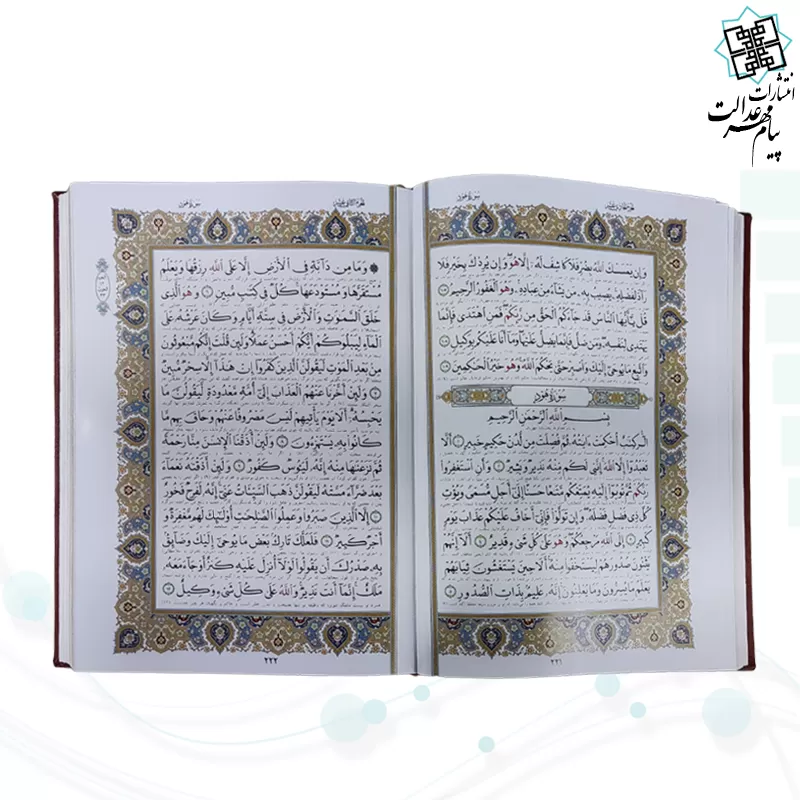 انتشارات
پیام مهر عدالت
وَإِن يَمْسَسْكَ اللَّهُ بِضُرٍّ فَلَا كَاشِفَ لَهُ إِلَّا هُوَ وَإِن يُرِدْكَ بِخَيْرٍ فَلَا
رَادَّ لِفَضْلِهِ يُصِيبُ بِهِ مَن يَشَاءُ مِنْ عِبَادِهِ وَهُوَ الْغَفُورُ الرَّحِيمُ
قُلْ يَا أَيُّهَا النَّاسُ قَدْ جَاءَكُمُ الْحَقُّ مِن رَّبِّكُمْ فَمَنِ اهْتَدَى فَإِنَّمَا
يَهْتَدِي لِنَفْسِهِ وَمَن ضَلَّ فَإِنَّمَا يَضِلُّ عَلَيْهَا وَمَا أَنَا عَلَيْكُم بِوَكِيلٍ
وَاتَّبِعْ مَا يُوحَى إِلَيْكَ وَاصْبِرْ حَتَّى يَحْكُمَ اللَّهُ وَهُوَ خَيْرُ الْحَاكِمِينَ
سُورَةُ هُودٍ
بِسْمِ اللَّهِ الرَّحْمَنِ الرَّحِيمِ
الر كِتَابٌ أُحْكِمَتْ آيَاتُهُ ثُمَّ فُصِّلَتْ مِن لَّدُنْ حَكِيمٍ خَبِيرٍ أَلَّا
تَعْبُدُوا إِلَّا اللَّهَ إِنَّنِي لَكُم مِّنْهُ نَذِيرٌ وَبَشِيرٌ وَأَنِ اسْتَغْفِرُوا
رَبَّكُمْ ثُمَّ تُوبُوا إِلَيْهِ يُمَتِّعْكُم مَّتَاعًا حَسَنًا إِلَى أَجَلٍ مُّسَمًّى وَيُؤْتِ
كُلَّ ذِي فَضْلٍ فَضْلَهُ وَإِن تَوَلَّوْا فَإِنِّي أَخَافُ عَلَيْكُمْ عَذَابَ يَوْمٍ
كَبِيرٍ إِلَى اللَّهِ مَرْجِعُكُمْ وَهُوَ عَلَى كُلِّ شَيْءٍ قَدِيرٌ أَلَا إِنَّهُمْ
يَثْنُونَ صُدُورَهُمْ لِيَسْتَخْفُوا مِنْهُ أَلَا حِينَ يَسْتَغْشُونَ ثِيَابَهُمْ
يَعْلَمُ مَا يُسِرُّونَ وَمَا يُعْلِنُونَ إِنَّهُ عَلِيمٌ بِذَاتِ الصُّدُورِ
٢٢١
وَمَا مِن دَابَّةٍ فِي الْأَرْضِ إِلَّا عَلَى اللَّهِ رِزْقُهَا وَيَعْلَمُ
مُسْتَقَرَّهَا وَمُسْتَوْدَعَهَا كُلٌّ فِي كِتَابٍ مُّبِينٍ وَهُوَ الَّذِي
خَلَقَ السَّمَوَاتِ وَالْأَرْضَ فِي سِتَّةِ أَيَّامٍ وَكَانَ عَرْشُهُ عَلَى
الْمَاءِ لِيَبْلُوَكُمْ أَيُّكُمْ أَحْسَنُ عَمَلًا وَلَئِن قُلْتَ إِنَّكُم مَّبْعُوثُونَ
مِن بَعْدِ الْمَوْتِ لَيَقُولَنَّ الَّذِينَ كَفَرُوا إِنْ هَذَا إِلَّا سِحْرٌ مُّبِينٌ
وَلَئِنْ أَخَّرْنَا عَنْهُمُ الْعَذَابَ إِلَى أُمَّةٍ مَّعْدُودَةٍ لَّيَقُولُنَّ مَا
يَحْبِسُهُ أَلَا يَوْمَ يَأْتِيهِمْ لَيْسَ مَصْرُوفًا عَنْهُمْ وَحَاقَ بِهِم مَّا
كَانُوا بِهِ يَسْتَهْزِءُونَ وَلَئِنْ أَذَقْنَا الْإِنسَانَ مِنَّا رَحْمَةً
ثُمَّ نَزَعْنَاهَا مِنْهُ إِنَّهُ لَيَئُوسٌ كَفُورٌ وَلَئِنْ أَذَقْنَاهُ نَعْمَاءَ
بَعْدَ ضَرَّاءَ مَسَّتْهُ لَيَقُولَنَّ ذَهَبَ السَّيِّئَاتُ عَنِّي إِنَّهُ لَفَرِحٌ فَخُورٌ
إِلَّا الَّذِينَ صَبَرُوا وَعَمِلُوا الصَّالِحَاتِ أُولَئِكَ لَهُم مَّغْفِرَةٌ وَ
أَجْرٌ كَبِيرٌ فَلَعَلَّكَ تَارِكٌ بَعْضَ مَا يُوحَى إِلَيْكَ وَضَائِقٌ
بِهِ صَدْرُكَ أَن يَقُولُوا لَوْلَا أُنزِلَ عَلَيْهِ كَنزٌ أَوْ جَاءَ مَعَهُ
مَلَكٌ إِنَّمَا أَنتَ نَذِيرٌ وَاللَّهُ عَلَى كُلِّ شَيْءٍ وَكِيلٌ
٢٢٢